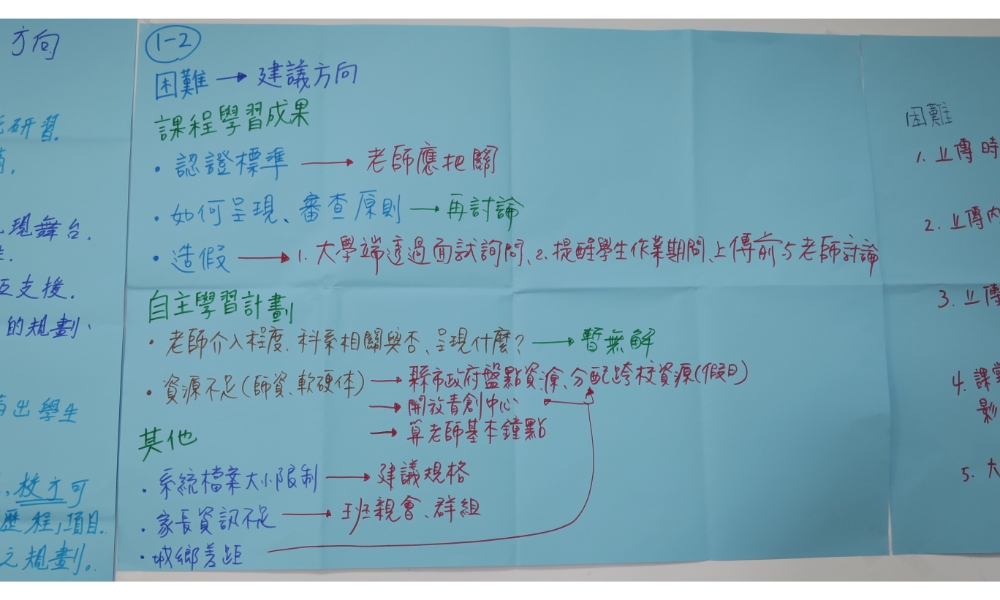 方向
研習.
現舞台.
互支援.
的規劃、
出學生
校方可
歷程,項目.
之規劃。
1-2
困難 → 建議方向
課程學習成果
・認證標準 → 老師應把關
・如何呈現、審查原則 → 再討論
・造假 → 1. 大學端透過面試詢問、2. 提醒學生作業期間、上傳前与老師討論
自主學習計劃
・老師介入程度、科系相關與否、呈現什麼? → 暫無解
・資源不足(師資、軟硬体) → 縣市政府盤點資源、分配跨校資源(假日)
→ 開放青創中心
→ 算老師基本鐘點
其他
・系統檔案大小限制 → 建議規格
・家長資訊不足 → 班親會、群組
・城鄉差距
困難
1. 上傳時
2. 上傳內
3. 上傳
4. 課
影
5. 大